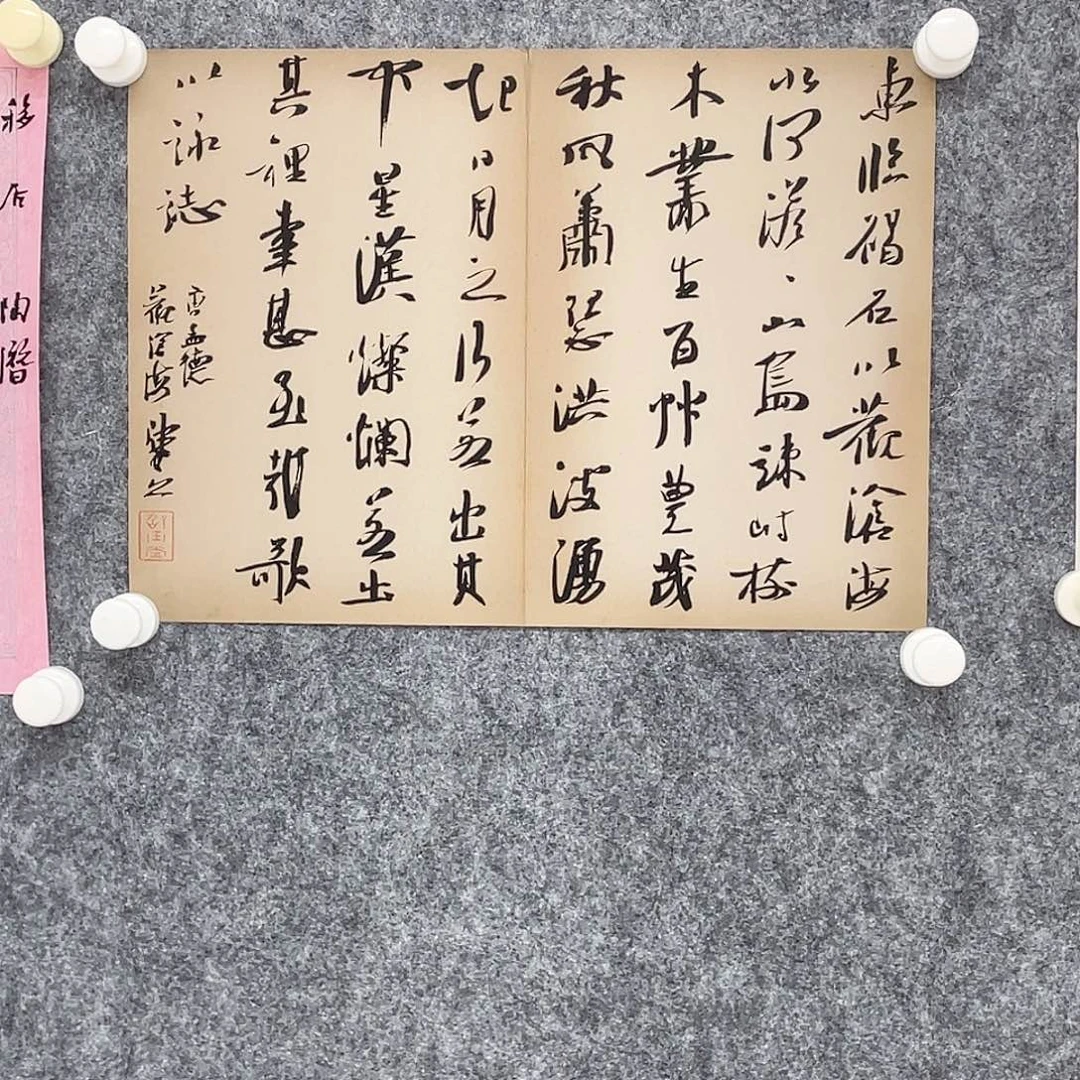 東臨碣石以觀滄海
水何澹、山島竦峙樹
木叢生百艸豐茂
秋風蕭瑟洪波湧
起日月之行若出其
中星漢燦爛若出
其裡幸甚至哉歌
以詠誌
曹孟德
觀滄海
移居 陶潛